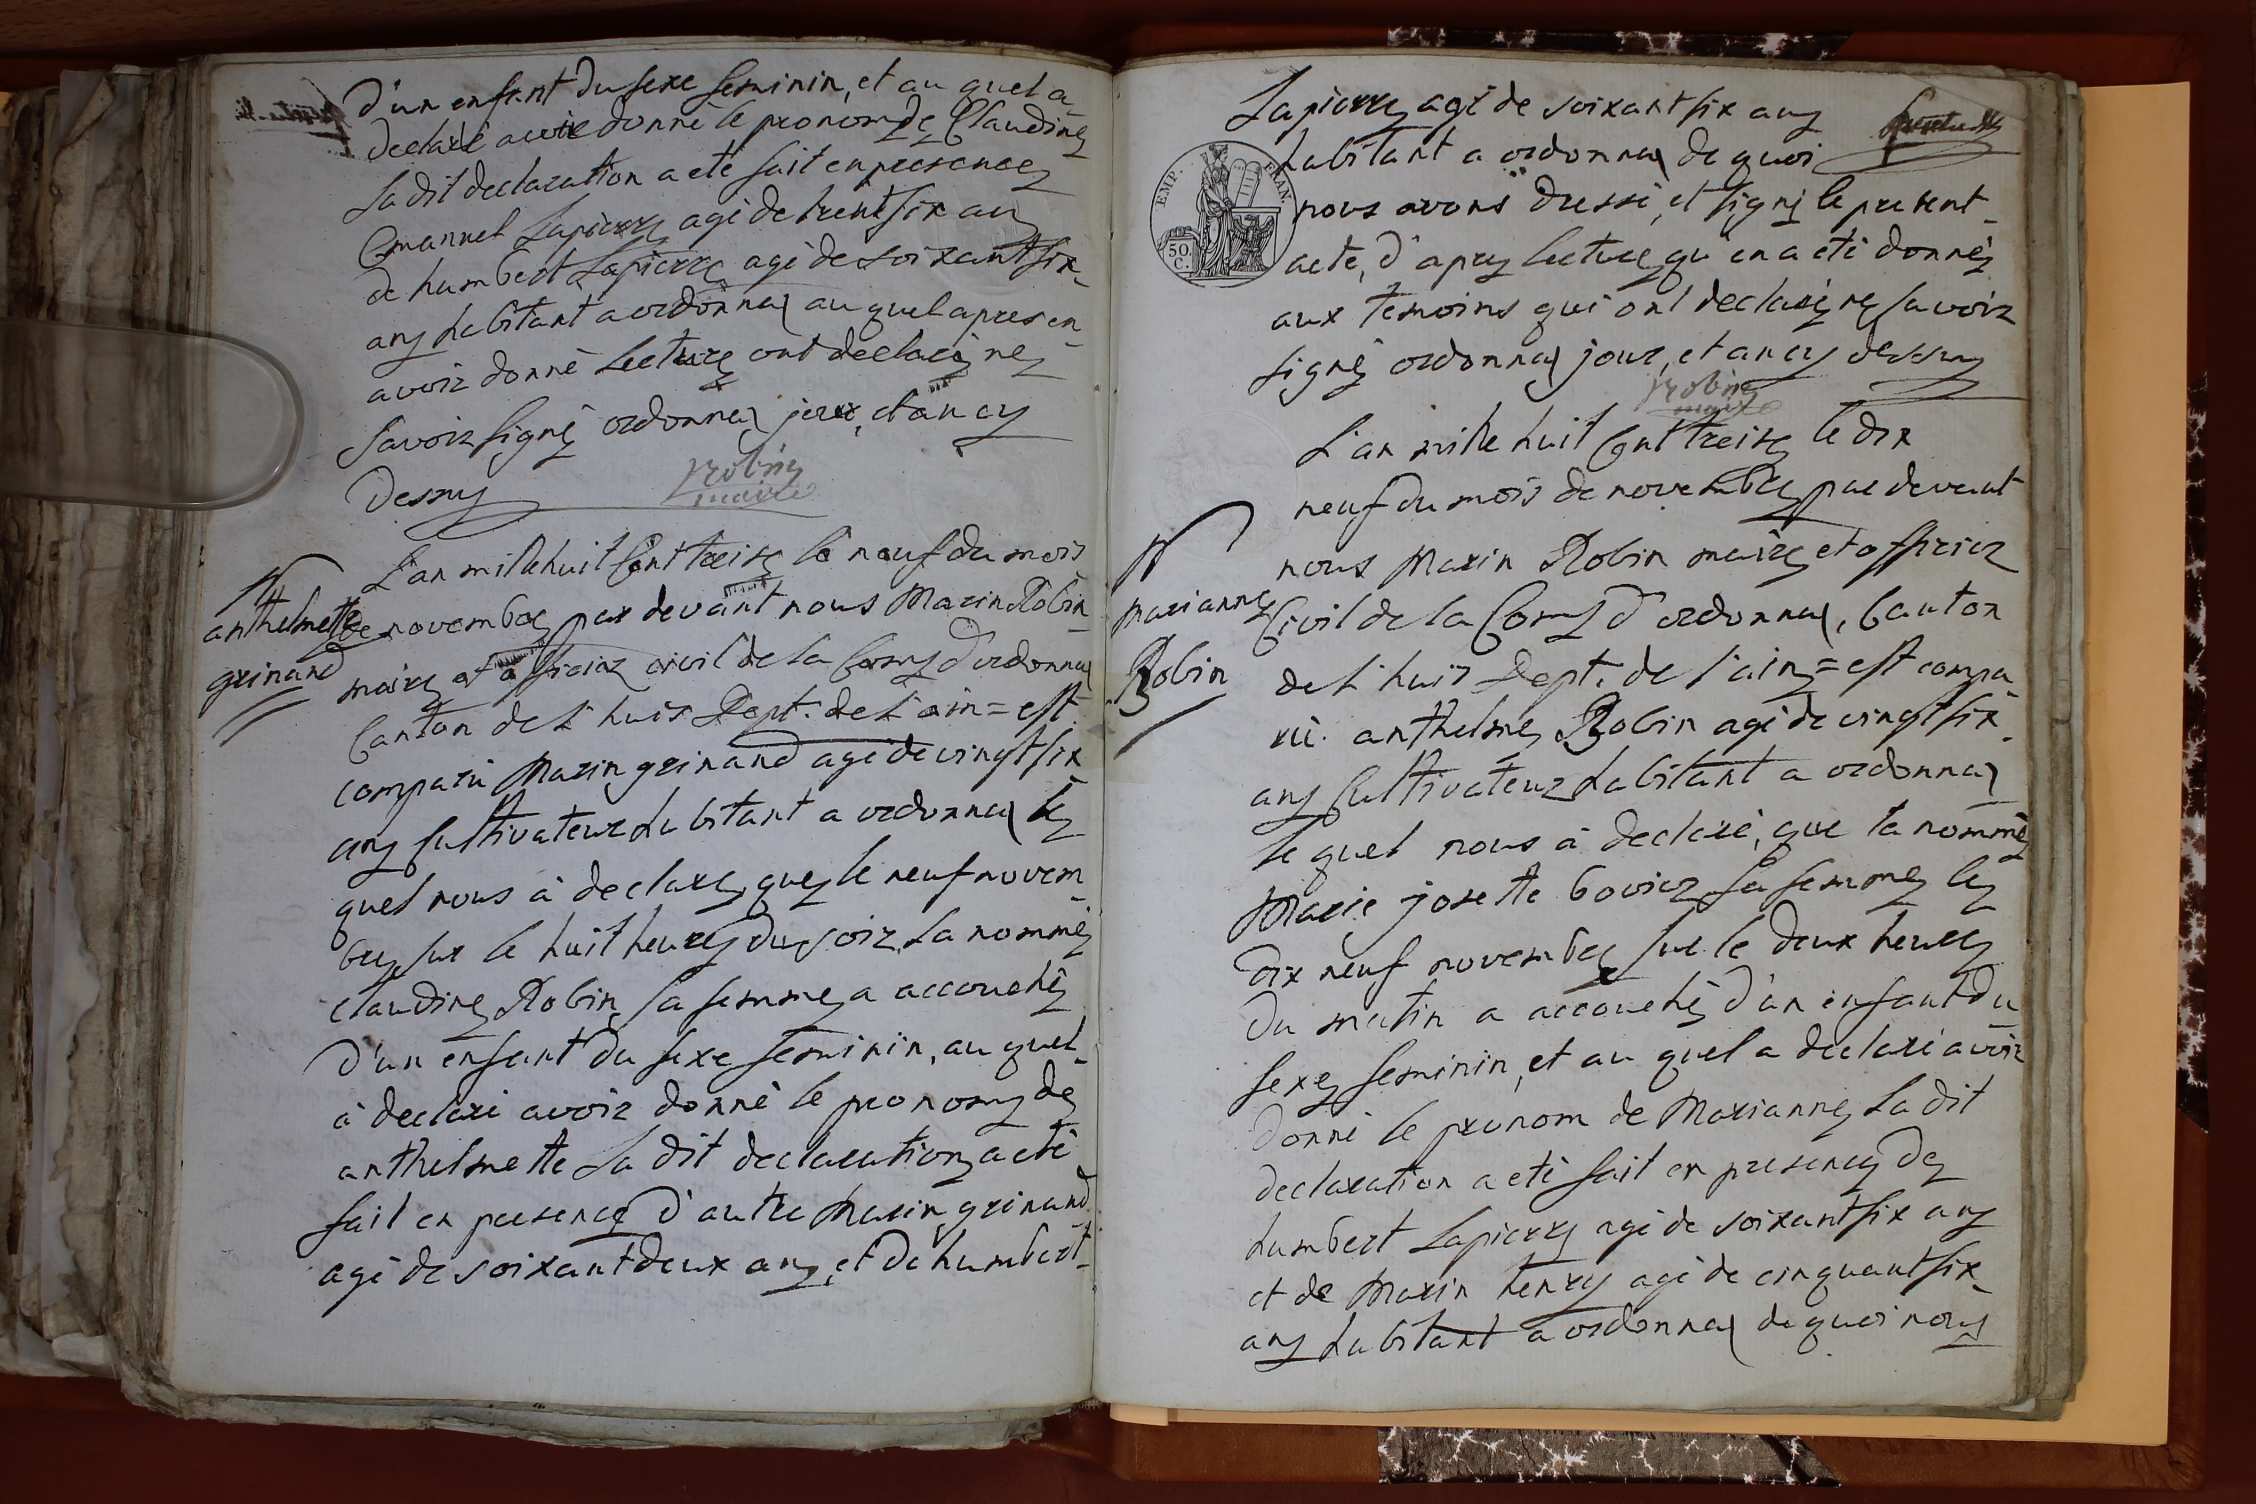 d'un enfant du sexe feminin, et au quel a
declaré avoir donné le pronom de Claudine
la dit declaration a eté fait en presence
emanuel Lapierre agé de trent six an
de humbert Lapierre agé de soixant six
ans habitant a ordonnax au quel apres en
avoir donné lecture ont declaré ne
savoir signé ordonnax jour, et an cy
dessus
Robin
maire
N
anthelmette
grinand
L'an mille huit Cent treize le neuf du mois
de novembre par devant nous Marin Robin
maire et officier civil de la Come d'ordonnax
Canton de L'huis Dept. de L'ain = est
comparu Marin grinand agé de vingt six
ans Cultivateur habitant a ordonnax le
quel nous à declare que le neuf novem
bre sur le huit heures du soir la nommé
claudine Robin sa femme a accouché
d'un enfant du sexe feminin, au quel
à declaré avoir donné le pronom de
anthelmette la dit declaration a eté
fait en presence d'autre Marin grinand
agé de soixant deux ans, et de humbert
Lapierre agé de soixant six ans
EMP. FRAN.
50 C.
habitant a ordonnax de quoi
nous avons dressé, et signé le present
acte, d'apres lecture qu'en a eté donné
aux temoins qui ont declaré ne savoir
signé ordonnax jour, et an cy dessus
Robin
maire
N
marianne
Robin
L'an mille huit Cent treize le dix
neuf du mois de novembre par devant
nous Marin Robin maire et officier
Civil de la Come d'ordonnax, Canton
de L'huis Dept. de l'ain = est compa
ru anthelme Robin agé de vingt six
ans Cultivateur habitant a ordonnax
le quel nous à declaré, que la nommé
Marie josette bovier sa femme le
dix neuf novembre sur le deux heures
du matin a accouché d'un enfant du
sexe feminin, et au quel a declaré avoir
donné le prenom de Marianne la dit
declaration a eté fait en presence de
humbert Lapierre agé de soixant six ans
et de Marin henry agé de cinquant six
ans habitant a ordonnax de quoi nous